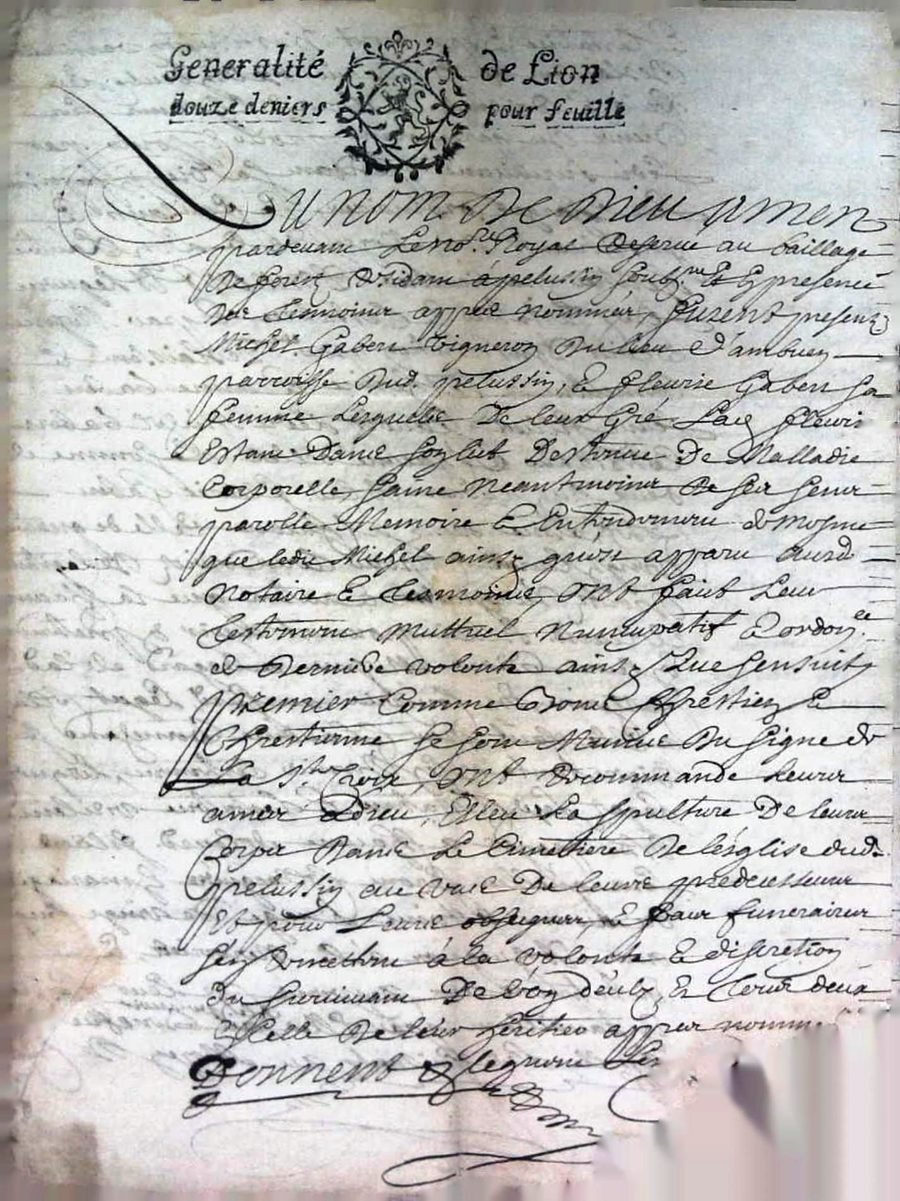 Generalité de Lion
douze deniers pour feuille
Au nom De Dieu amen
pardevant Le no.re Royal au baillage
De forest residant a pelussin soubz.ne Et En presence
Des tesmoins appres nommés, furent present
Michel Gabert vigneron Du lieu d'ambuen
parroisse Dud. pelussin, & fleurie Gabert sa
femme Lesquels De leur Gré Lad fleurie
Estant Dans son lict Destenue De Malladie
Corporelle, saine neantmoins de ses sens
parolle Memoire & Entendement de mesme
que ledit Michel ainsy quiest apparu aud
Notaire & tesmoins, ont faict Leur
testement muttuel nuncupatif & ordon.ce
de Derniere volonte ainsy Que sensuit
Premier Comme bons Chrestien &
Chrestienne se sont Munies Du signe de
La S.te Croix, ont recommande Leurs
ames a dieu, Esleu La sepulture De leurs
Corps Dans Le Cimetiere De léglise dud.
pelussin au vase De leurs predecesseurs
Et pour Leurs obseques, & fraix funeraires
sen remettre à la volonte & discretion
du survivant De L'un d'eulx, Et tous deux
a Celle De leur heritier appres nommé
Donnent & leguent Les